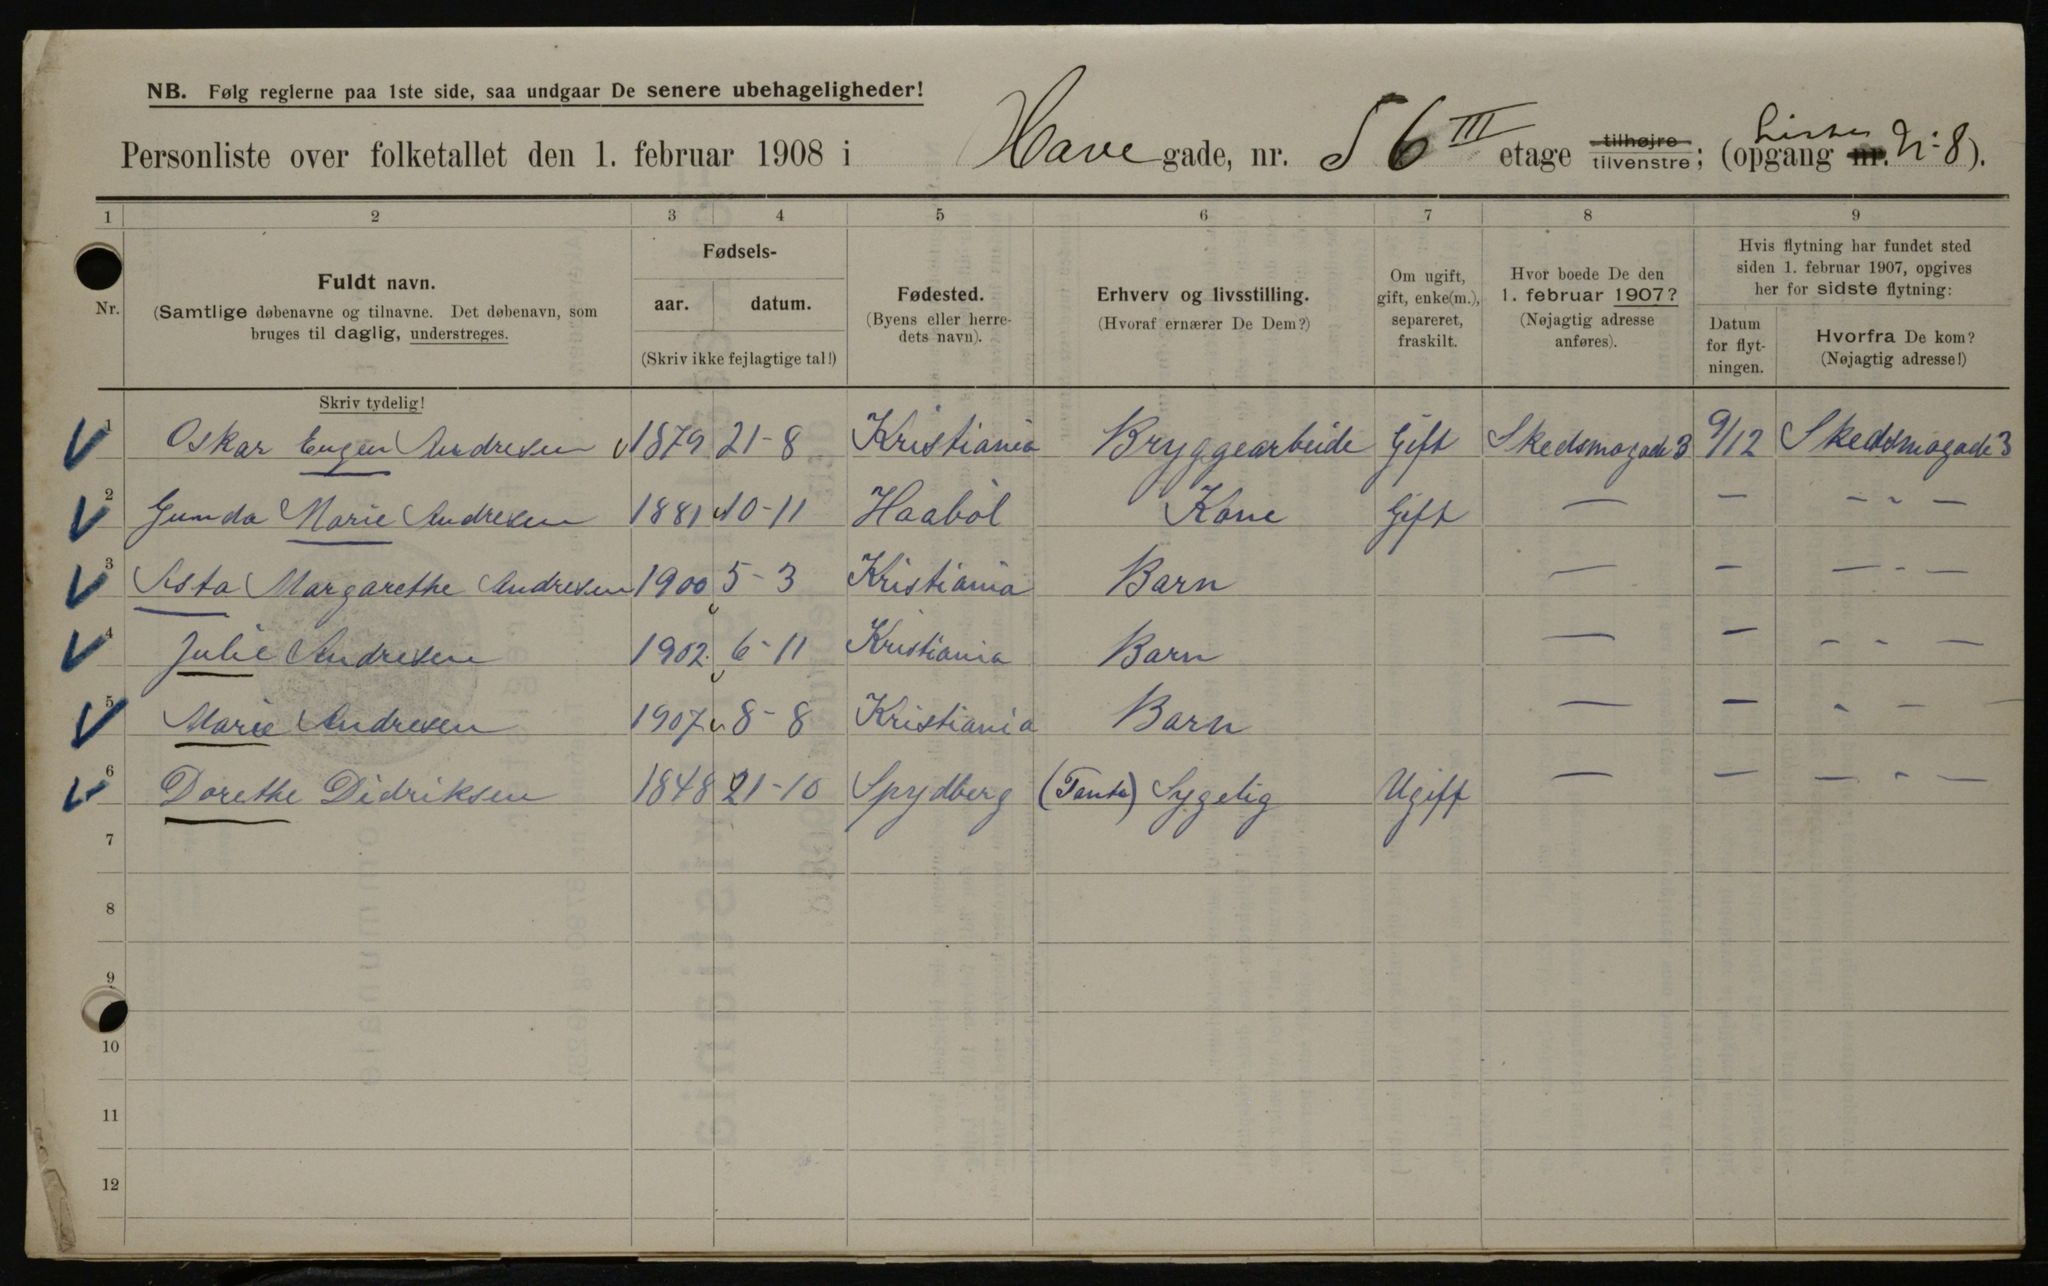 NB. Følg reglerne paa 1ste side, saa undgaar De senere ubehageligheder!
Personliste over folketallet den 1. februar 1908 i Have gade, nr. 56 III etage tilhøjre tilvenstre; (opgang nr. 8).
1 2 3 4 5 6 7 8 9
Nr.
Fuldt navn.
(Samtlige døbenavne og tilnavne. Det døbenavn, som
bruges til daglig, understreges.
Skriv tydelig!
Fødsels-
aar. datum.
(Skriv ikke fejlagtige tal!)
Fødested.
(Byens eller herre-
dets navn).
Erhverv og livsstilling.
(Hvoraf ernærer De Dem?)
Om ugift,
gift, enke(m.),
separeret,
fraskilt.
Hvor boede De den
1. februar 1907?
(Nøjagtig adresse
anføres).
Hvis flytning har fundet sted
siden 1. februar 1907, opgives
her for sidste flytning:
Datum
for flyt-
ningen.
Hvorfra De kom?
(Nøjagtig adresse!)
1 Oskar Eugen Andresen 1879 21-8 Kristiania Bryggearbeide Gift Skedsmogade 3 9/12 Skedsmogade 3
2 Gunda Marie Andresen 1881 10-11 Haabøl Kone Gift — — — " —
3 Asta Margarethe Andresen 1900 5-3 Kristiania Barn — — — " —
4 Julie Andresen 1902 6-11 Kristiania Barn — — - - —
5 Marie Andresen 1907 8-8 Kristiania Barn — — " — —
6 Dorethe Didriksen 1848 21-10 Spydberg (Tante) Sygelig Ugift — — — " —
7
8
9
10
11
12